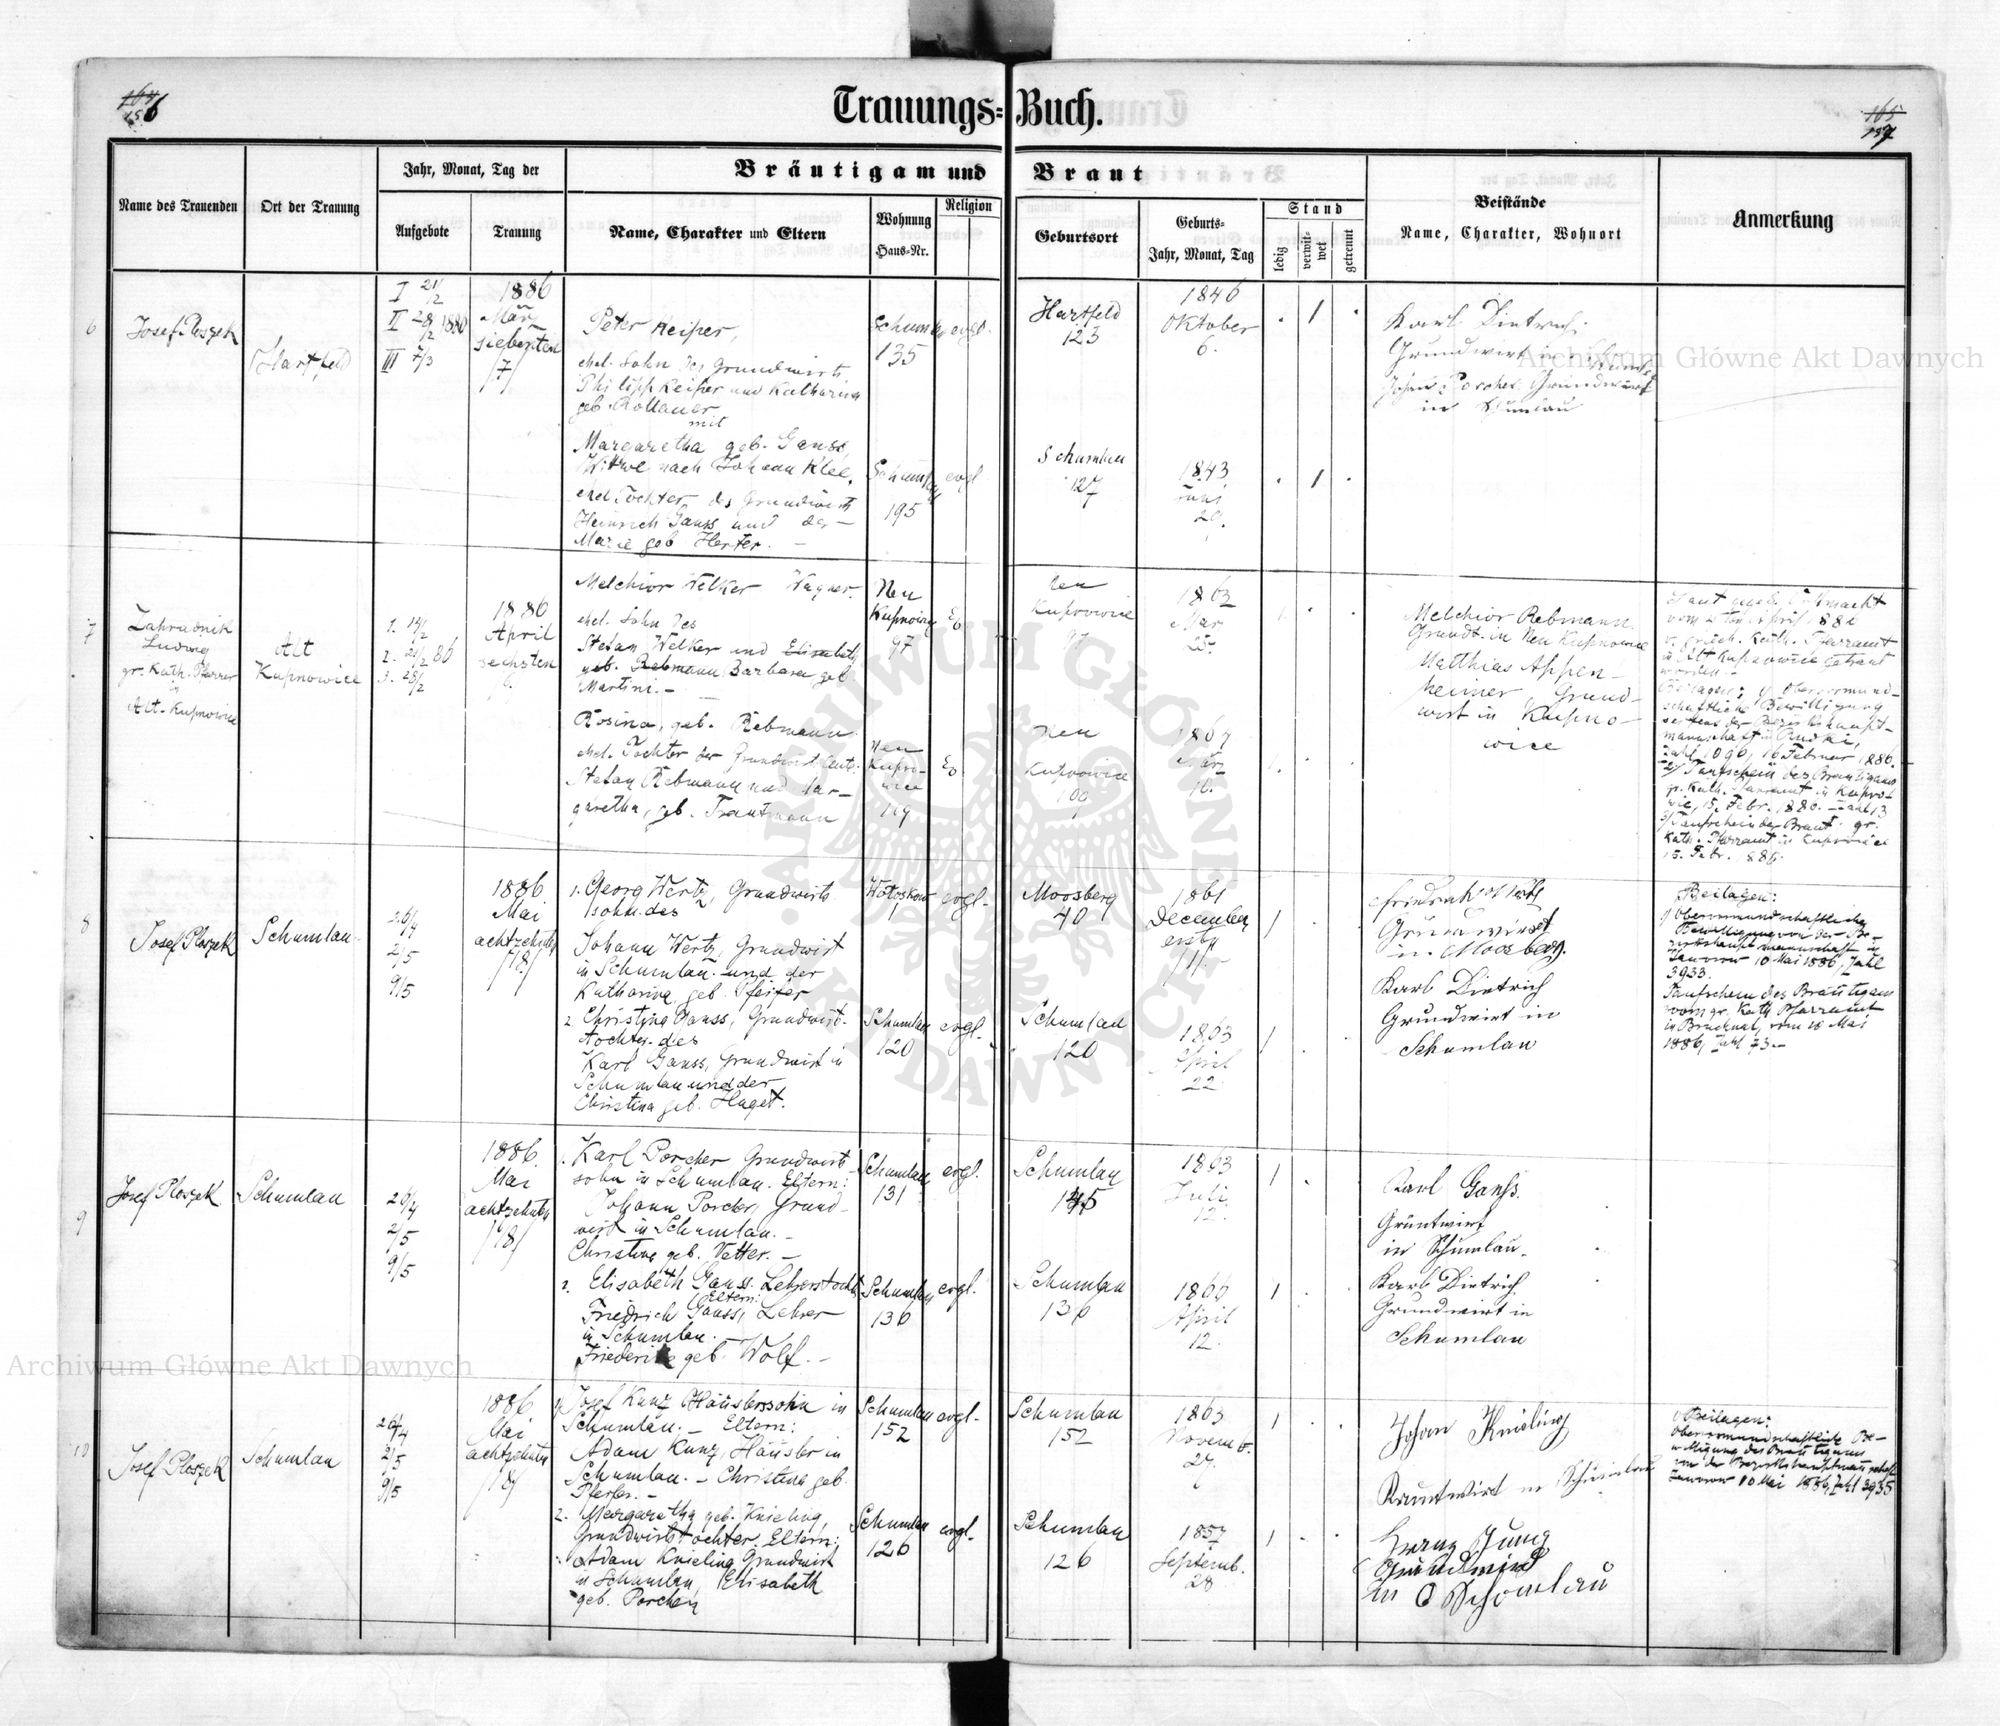 156
Trauungs-Buch.
165
157
Name des Trauenden
Ort der Trauung
Jahr, Monat, Tag der
Aufgebote
Trauung
Bräutigam und Braut
Name, Charakter und Eltern
Wohnung
Haus-Nr.
Religion
Geburtsort
Geburts-
Jahr, Monat, Tag
Stand
ledig
verwit-
wet
getrennt
Beistände
Name, Charakter, Wohnort
Anmerkung
6
Josef Ploszek
Hartfeld
I 21/2
II 28/2 1886
III 7/3
1886
März
siebenten
/7/
Peter Keiper,
ehel. Sohn des Grundwirts
Philipp Keiper und Katharina
geb. Rollauer
mit
Margaretha geb. Ganss,
Witwe nach Johann Klee,
ehel. Tochter des Grundwirts
Heinrich Ganss und der
Marie geb. Herter.
135
evgl.
195
evgl
Hartfeld
123
1846
Oktober
6.
Schumlau
127
1843
Juni
20.
Karl Dietrich
Grundwirt in
Johan Porcher Grundwirt
in Schumlau
7
Zahradnik
Ludwig
gr. Kath. Pfarrer
in
Alt-Kupnowice
Alt
Kupnowice
1. 14/2
2. 21/2 86
3. 28/2
1886
April
sechsten
6.
Melchior Welker Wagner.
ehel. Sohn des
Stefan Welker und Elisabeth
geb. Rebmann Barbara geb
Martini.-
Rosina, geb. Rebmann
ehel. Tochter der Grundwirtleute
Stefan Rebmann und Mar-
garetha, geb. Trautmann
Neu
Kupnowice
97
Neu
Kupno-
wice
109
Neu
Kupnowice
97
Mai
25.
Neu
Kupnowice
109
1867
März
16.
Melchior Rebmann
Grundw. in Neu Kupnowice
Matthias Appen-
heimer, Grund-
wirt in Kupno-
wice
v. griech. Kath. Pfarramt
in Alt Kupnowice getraut
worden.-
Beilagen: 1) Obervormund-
schaftliche Bewilligung
seitens der Bezirkshaupt-
mannschaft in Rudki,
Zahl 1096, 16 Februar 1886.
2) Taufschein des Bräutigams
gr. Kath. Pfarramt in Kupno-
wice, 15. Febr. 1886. - Zahl 13
3) Taufschein der Braut gr.
Kath. Pfarramt in Kupnowice
15. Febr. 1886.
8
Josef Ploszek
Schumlau
26/4
2/5
9/5
1886
Mai
achtzehnten
/18/
1. Georg Wertz, Grundwirts
sohn des
Johann Wertz, Grundwirt
in Schumlau und der
Katharina geb. Pfeifer
2. Christina Ganss, Grundwirt-
tochter des
Karl Ganss, Grundwirt in
Schumlau und der
Christina geb. Haget.
1
evgl.
Schumlau
120
evgl.
Moosberg
40
1861
December
erster
/1/.
Schumlau
120
1863
April
22.
Grundwirt
in Moosberg.
Karl Dietrich
Grundwirt in
Schumlau
Beilagen:
1) Obervormundschaftliche
Bewilligung von der Be-
zirkshauptmannschaft in
Jaworow 10 Mai 1886, Zahl
3933.
Taufschein des Bräutigams
vom gr. Kath. Pfarramt
in Bruchnal, vom 18 Mai
1886, Zahl 73.-
9
Josef Ploszek
Schumlau
26/4
2/5
9/5
1886.
Mai
achtzehnten
/18/
1. Karl Porcher Grundwirts-
sohn in Schumlau. Eltern:
Johann Porcher, Grund-
wirt in Schumlau.-
Christina geb. Vetter.-
2. Elisabeth Ganss. Lehrerstochter
Eltern:
Friedrich Ganss, Lehrer
in Schumlau.-
Friederike geb. Wolf.-
Schumlau
131
evgl.
Schumlau
136
evgl.
Schumlau
1863
Juli
12.
Schumlau
136
1866
April
12.
Karl Ganss.
Grundwirt
in Schumlau.
Karl Dietrich
Grundwirt in
Schumlau
10
Josef Ploszek
Schumlau
26/4
2/5
9/5
1886
Mai
achtzehnten
/18/
1. Josef Kunz Häuslerssohn in
Schumlau.- Eltern:
Adam Kunz, Häusler in
Schumlau.- Christina geb.
Pfeifer.-
2. Margaretha geb. Knieling,
Grundwirtstochter. Eltern:
Adam Knieling Grundwirt
in Schumlau, Elisabeth
geb. Porcher
Schumlau
152
evgl.
Schumlau
126
evgl.
Schumlau
152
1863
Novemb.
27.
Schumlau
126
1857
Septemb.
28
Johan Knieling
Grundwirt in Schumlau
Franz Jung
Grundwirt
in Schomlau
Beilagen:
Obervormundschaftliche Be-
willigung des Bräutigams
von der Bezirkshauptmannschaft
Jaworow 10 Mai 1886, Zahl 3935
Archiwum Główne Akt Dawnych
Archiwum Główne Akt Dawnych
ARCHIWUM GŁÓWNE AKT DAWNYCH